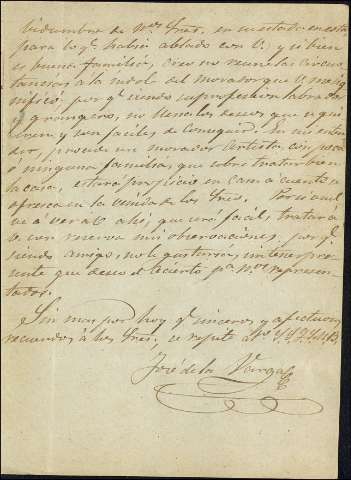 vidumbre de nros Sres. en su estado en esta
para lo q. habia ablado con V. y si bien
es buena familia, creo no reune las circuns
tancias a la indole del Morador que V. me in
dicó, por q. siendo su profesion labrador
y grangero, no tiene los deseos que se qui
eren y son faciles de conseguir. En mi enten
der, pienso un morador artista con poca
ó ninguna familia, que sobre tratar bien
la casa, estará propicio en cama cuanto se
ofresca en la venida de los Sres. Por si aquel
va á ver á V. ahi, que será facil, tratará
V. con reserva mis observaciones, por q.
siendo amigo, no le gustaria,
que deseo el acierto pa. nros represen
tados.
Sin mas por hoy q. sinceros y afectuosos
recuerdos á los Sres, se repite
José de la Varga